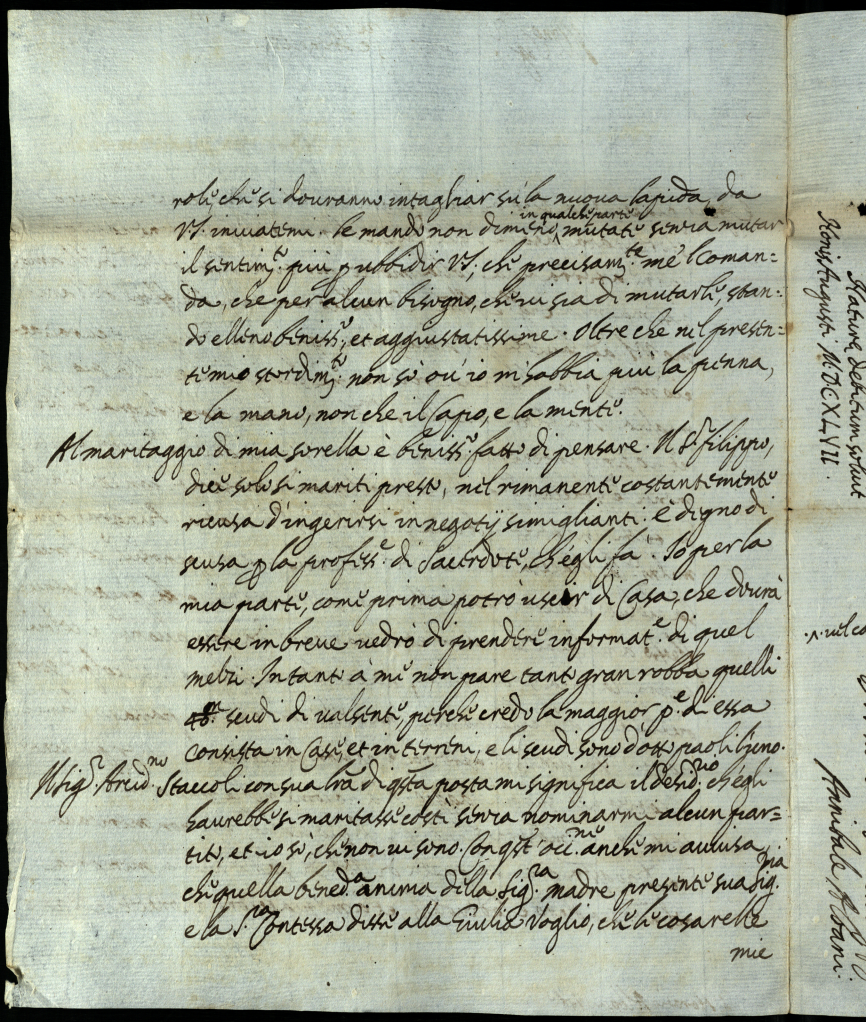 role che si douranno intagliar sù la nuoua lapida, da
VS. inuiatemi. Le mando non dimeno in qualche parte mutate senza mutar
il sentim.to più p ubbidir VS., che precisam.te me 'l coman=
da, che per alcun bisogno, che ui sia di mutarle, stan=
do elleno beniss.o, et aggiustatissime. Oltre che nel presen=
te mio stordim.to non sò ou' io m'habbia più la penna,
e la mano, non che il Capo, e la mente.
Al maritaggio di mia sorella è beniss.o fatto di pensare. Il S.r Filippo,
dice solo si mariti presto, nel rimanente costantemente
ricusa d'ingerirsi in negotij simiglianti: è degno di
scusa p la profess.e di Sacerdote, ch'egli fà. Io per la
mia parte, come prima potrò uscir di Casa, che dourà
essere in breue uedrò di prendere informat.e di quel
melzi. Intanto à me non pare tanto gran robba quelli
scudi di ualsente perche credo la maggior p.e di essa
consista in Case, et in terreni, e li scudi sono d'otto paoli l'uno.
Il Sig.r Arcid.no Staccoli con sua lra di qsta posta mi significa il desid.rio ch'egli
haurebbe si maritasse costì senza nominarmi alcun par=
tito, et io sò, che non ui sono. Con qst' occ.ne anche mi auuisa
che quella bened.a anima della Sig.ra madre presente sua Sig.ria
e la S.ra Contessa disse alla Giulia Voglio, che le cosarelle
mie
Naturæ debitum soluit
Honis Augusti MDCXLVII.
uel co
Annibale Albani.